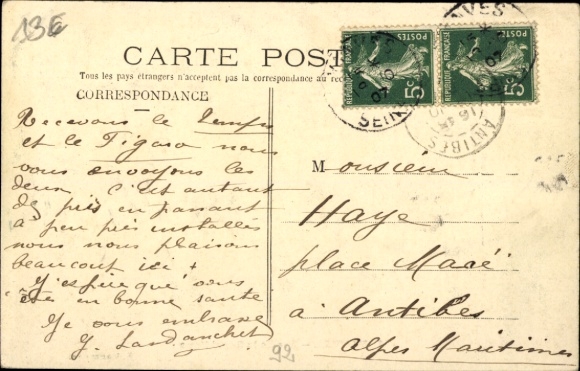 13E
CARTE POST
Tous les pays étrangers n'acceptent pas la correspondance au rec
CORRESPONDANCE
Recevons le Temps
et le Figaro nous
vous envoyons les
deux. C'est autant
de pris en passant
à peu près installés
nous nous plaisons
beaucoup ici
J'espère que vous
êtes en bonne santé
Je vous embrasse
Monsieur
Haye
place Macé
à Antibes
Alpes Maritimes
92
POSTES
RÉPUBLIQUE FRANÇAISE
5c
POSTES
RÉPUBLIQUE FRANÇAISE
5c
VANVES
SEINE
ANTIBES